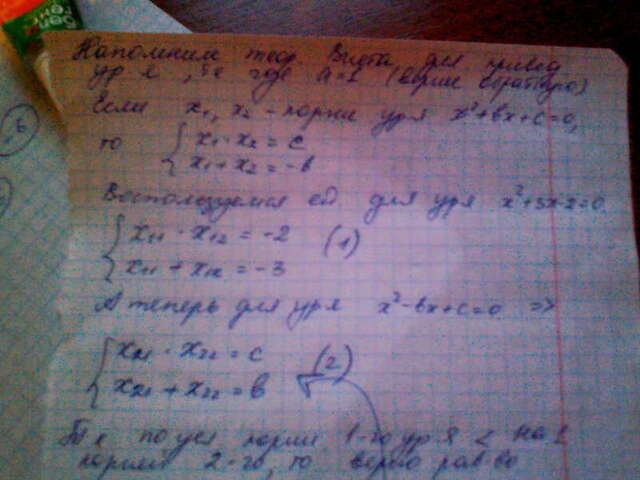 Напомним теор. Виета для привед
ур-я, те где a=1 (верно обратную)
Если x₁, x₂ - корни ур-я x²+bx+c=0,
то { x₁ · x₂ = c
x₁ + x₂ = -b
Воспользуемся ей для ур-я x²+3x-2=0
{ x₁₁ · x₁₂ = -2 (1)
x₁₁ + x₁₂ = -3
А теперь для ур-я x²-bx+c=0 =>
{ x₂₁ · x₂₂ = c (2)
x₂₁ + x₂₂ = b
Т к по усл корни 1-го ур-я < на 1
корней 2-го, то верно рав-во